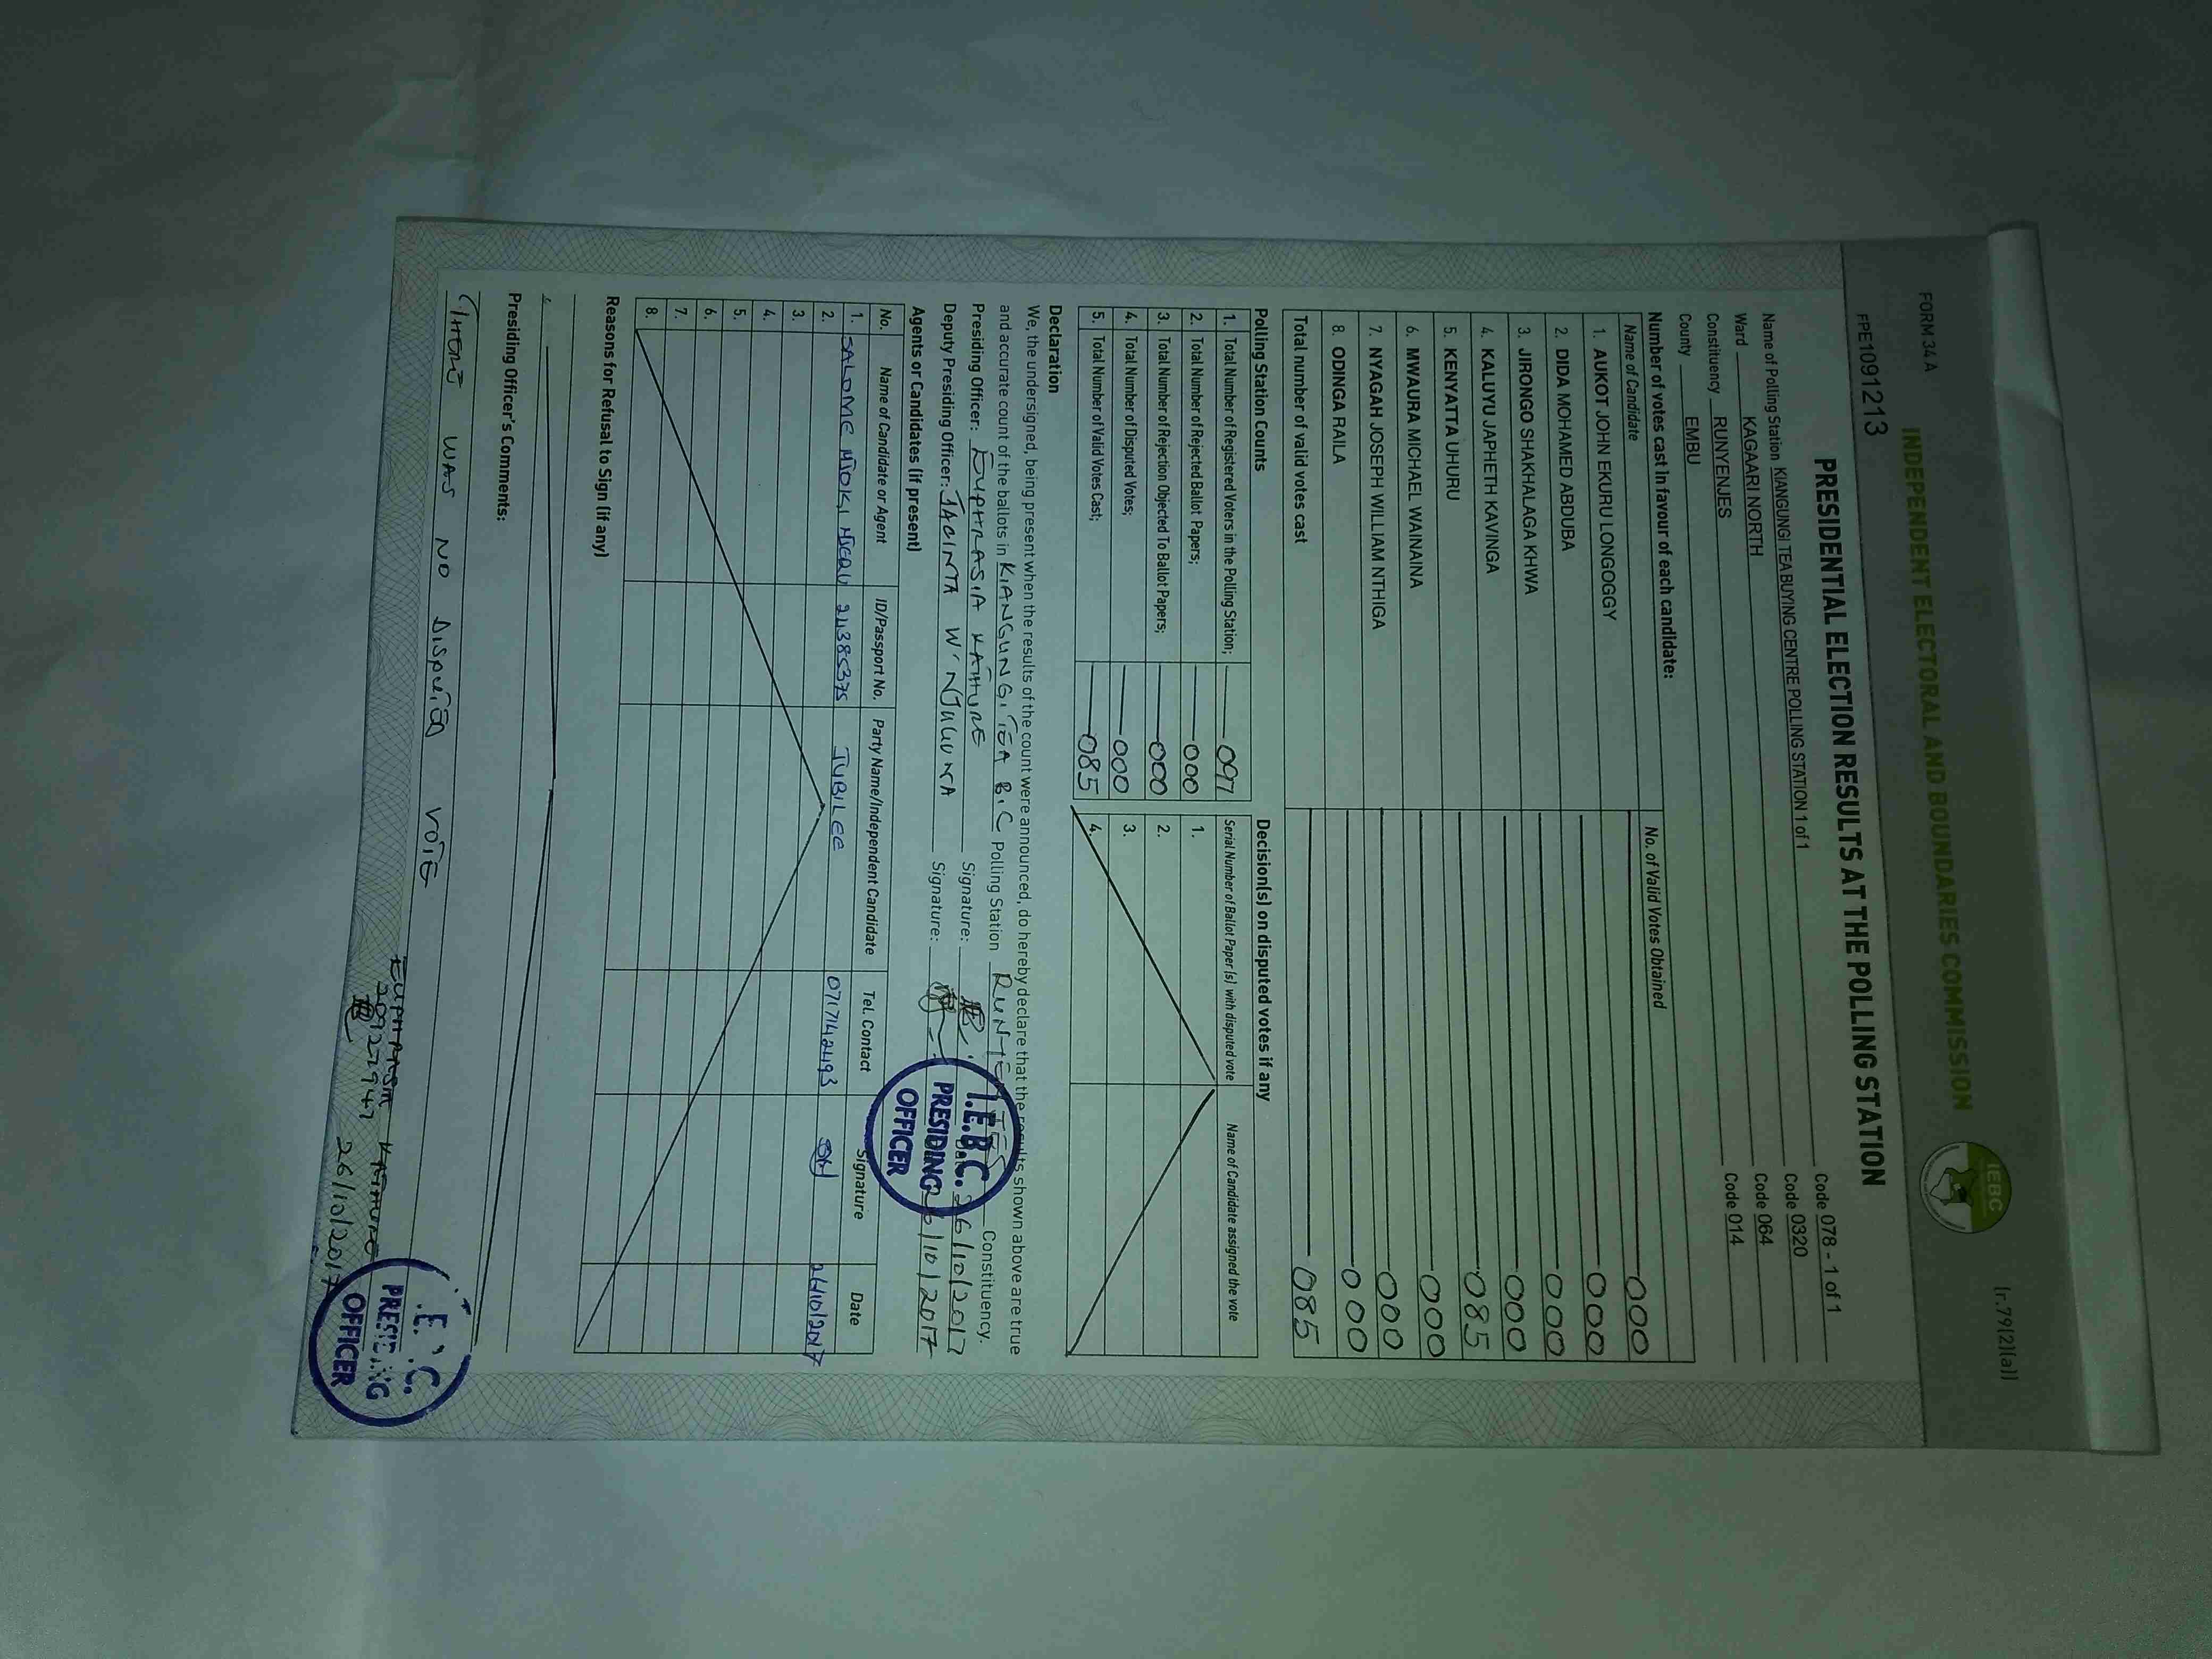 FORM 34 A
[r.79(2)(a)]
INDEPENDENT ELECTORAL AND BOUNDARIES COMMISSION
IEBC
FPE1091213
PRESIDENTIAL ELECTION RESULTS AT THE POLLING STATION
Name of Polling Station KIANGUNGI TEA BUYING CENTRE POLLING STATION 1 of 1 Code 078 - 1 of 1
Ward KAGAARI NORTH Code 0320
Constituency RUNYENJES Code 064
County EMBU Code 014
Number of votes cast in favour of each candidate:
Name of Candidate No. of Valid Votes Obtained
1. AUKOT JOHN EKURU LONGOGGY 000
2. DIDA MOHAMED ABDUBA 000
3. JIRONGO SHAKHALAGA KHWA 000
4. KALUYU JAPHETH KAVINGA 000
5. KENYATTA UHURU 085
6. MWAURA MICHAEL WAINAINA 000
7. NYAGAH JOSEPH WILLIAM NTHIGA 000
8. ODINGA RAILA 000
Total number of valid votes cast 085
Polling Station Counts Decision(s) on disputed votes if any
1. Total Number of Registered Voters in the Polling Station; 097 Serial Number of Ballot Paper (s) with disputed vote Name of Candidate assigned the vote
2. Total Number of Rejected Ballot Papers; 000 1.
3. Total Number of Rejection Objected To Ballot Papers; 000 2.
4. Total Number of Disputed Votes; 000 3.
5. Total Number of Valid Votes Cast; 085 4.
Declaration
We, the undersigned, being present when the results of the count were announced, do hereby declare that the results shown above are true
and accurate count of the ballots in KIANGUNGI TEA B.C Polling Station RUNYENJES Constituency.
Presiding Officer: EUPHRASIA KATHURE Signature: 26/10/2017
Deputy Presiding Officer: JACINTA W' NJUGUNA Signature: 26/10/2017
I.E.B.C.
PRESIDING
OFFICER
Agents or Candidates (if present)
No. Name of Candidate or Agent ID/Passport No. Party Name/Independent Candidate Tel. Contact Signature Date
1. SALOME NJOKI 24385375 JUBILEE 0717142493 26/10/2017
2.
3.
4.
5.
6.
7.
8.
Reasons for Refusal to Sign (if any)
Presiding Officer's Comments:
THERE WAS NO DISPUTED VOTE
EUPHRASIA KATHURE
26/10/2017
I.E.B.C.
PRESIDING
OFFICER